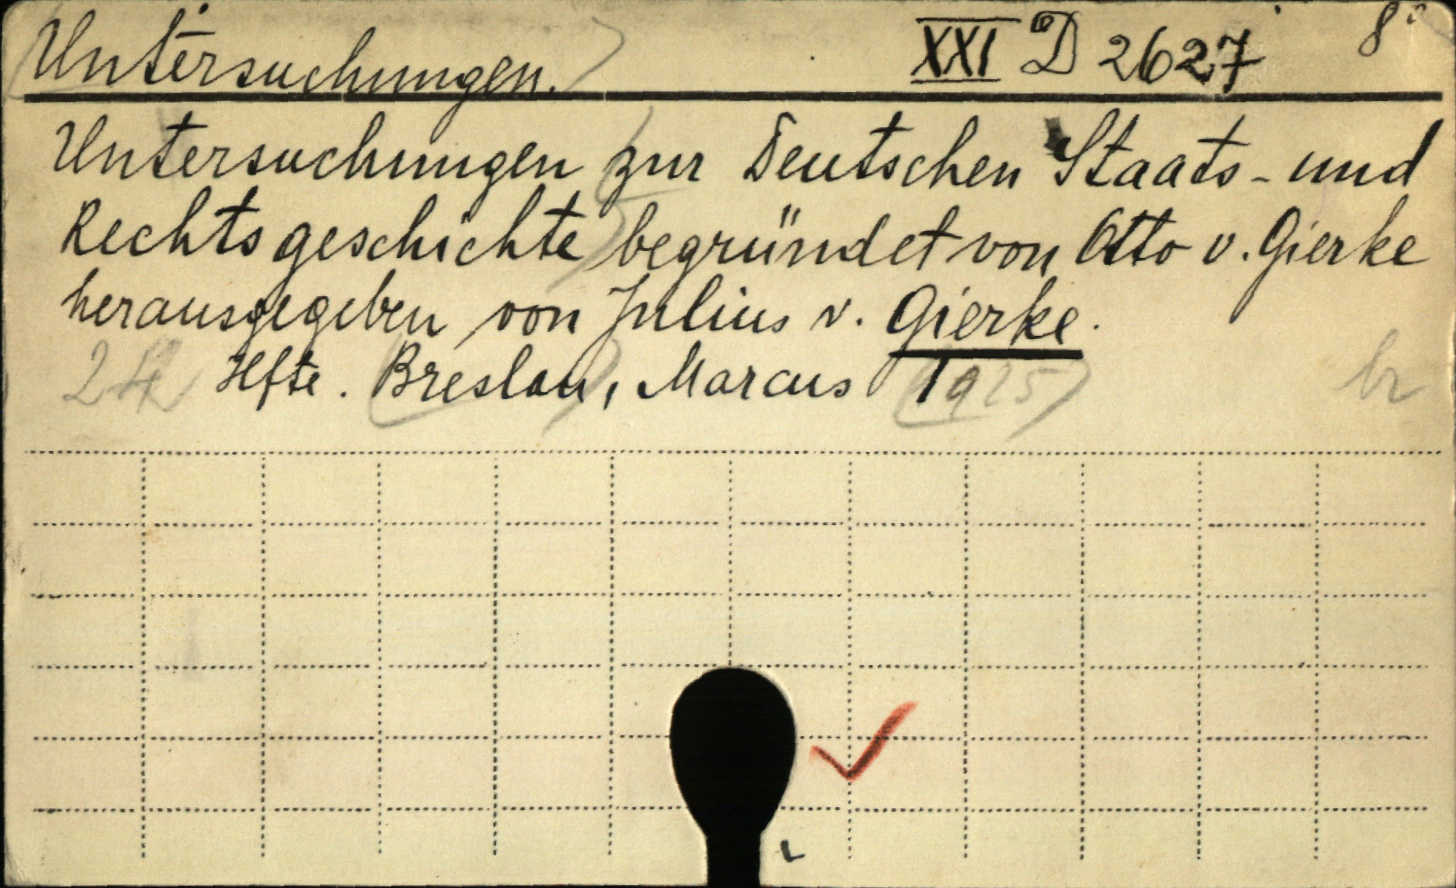 Untersuchungen. XXI D 2627 8°
Untersuchungen zur Deutschen Staats- und
Rechtsgeschichte begründet von Otto v. Gierke
herausgegeben von Julius v. Gierke.
Hfte. Breslau, Marcus 1925